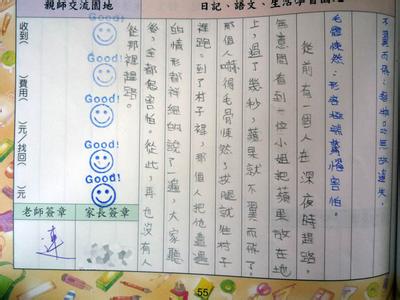 親師交流園地
日記、語文、生活學習
不翼而飛:無故遺失。
毛骨悚然:形容極端驚恐害怕。
從前有一個人在深夜時趕路。
無意間看到一位小姐把蘋果放在地
上,過了幾秒,蘋果就不翼而飛了。
那個人嚇得毛骨悚然,拔腿就往村子
裡跑。到了村子裡,那個人把他遭遇
的情形都詳細的說了一遍,大家聽
後,全都很害怕。從此,再也沒有人
從那裡趕路。
Good!
Good!
Good!
Good!
Good!
收到( )費用( )元/找回( )元
家長簽章
老師簽章
連
55